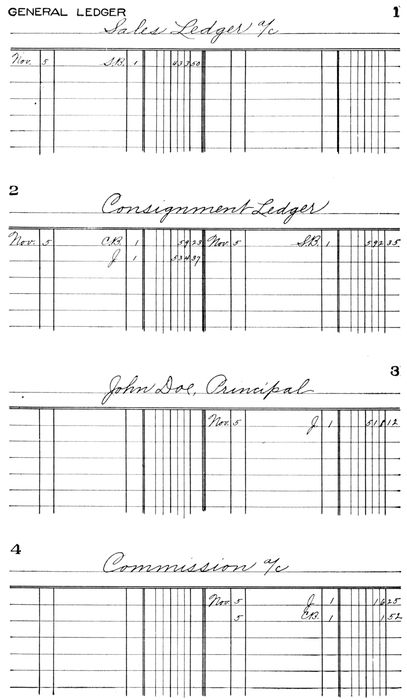 GENERAL LEDGER 1
Sales Ledger a/c
Nov. 5 S.B. 1 433 50
2
Consignment Ledger
Nov. 5 C.B. 1 59 23 Nov. 5 S.B. 1 592 35
J 1 534 37
3
John Doe, Principal
Nov. 5 J 1 518 12
4
Commission a/c
Nov. 5 J 1 16 25
5 C.B. 1 1 52